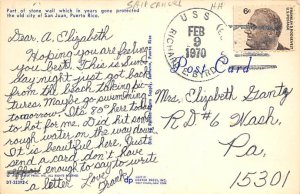 Part of stone wall which in years gone protected the
old city of San Juan, Puerto Rico.
SHIP CANCEL HH
U S S
RICHARD E. BYRD
FEB
9
1970
6¢
Post Card
Dear, A. Elizabeth
Hoping you are feeling
you best. This is Sunday
Ray might just got back
from the beach taking pic-
tures. Maybe go swimming
tomorrow. It's 80° here today
to hot for me. Did hit some
rough water on the way down
It is beautiful here. Just
send a card don't have
enough to say to write
a letter. Love,
Frank
Mrs. Elizabeth Gantz
RD#6 Wash,
Pa.
15301